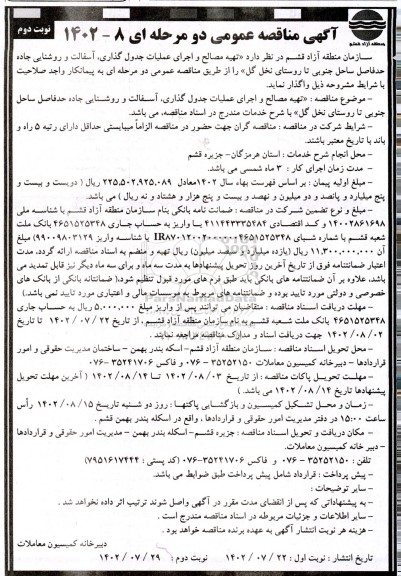 نوبت دوم
آگهی مناقصه عمومی دو مرحله ای ۸ - ۱۴۰۲
سازمان منطقه آزاد قشم در نظر دارد «تهیه مصالح و اجرای عملیات جدول گذاری، آسفالت و روشنایی جاده
حدفاصل ساحل جنوبی تا روستای نخل گل» را از طریق مناقصه عمومی دو مرحله ای به پیمانکار واجد صلاحیت
با شرایط مشروحه ذیل واگذار نماید.
- موضوع مناقصه : «تهیه مصالح و اجرای عملیات جدول گذاری، آسفالت و روشنایی جاده حدفاصل ساحل
جنوبی تا روستای نخل گل» با شرح خدمات مندرج در اسناد مناقصه، می باشد.
- شرایط شرکت در مناقصه : مناقصه گران جهت حضور در مناقصه الزاماً میبایستی حداقل دارای رتبه ۵ راه و
باند با تاریخ معتبر باشند.
- محل انجام شرح خدمات : استان هرمزگان- جزیره قشم
- مدت زمان اجرای کار : ۳ ماه شمسی می باشد.
- مبلغ اولیه پیمان : بر اساس فهرست بهاء سال ۱۴۰۲ معادل ۲۲۵,۵۰۲,۹۲۵,۰۸۹ ریال ( دویست و بیست و
پنج میلیارد و پانصد و دو میلیون و نهصد و بیست و پنج هزار و هشتاد و نه ریال ) می باشد.
- مبلغ و نوع تضمین شرکت در مناقصه : ضمانت نامه بانکی بنام سازمان منطقه آزاد قشم با شناسه ملی
۱۴۰۰۲۸۶۱۶۹۸ و کد اقتصادی ۴۱۱۴۴۳۳۳۵۴۸۴ یا واریز به حساب جاری ۴۶۵۱۵۲۵۳۴۸ بانک ملت
شعبه قشم با شماره شبای IR۸۷۰۱۲۰۰۲۰۰۰۰۰۰۴۶۵۱۵۲۵۳۴۸ با شناسه واریز ۹۹۰۰۹۸۰۳۱۲۹ مبلغ
۱۱,۳۰۰,۰۰۰,۰۰۰ ریال (یازده میلیارد و سیصد میلیون) ریال تهیه و منضم به اسناد مناقصه ارائه گردد، مدت
اعتبار ضمانتنامه فوق از تاریخ آخرین روز تحویل پیشنهادها به مدت سه ماه و برای سه ماه دیگر نیز قابل تمدید می
باشد، علاوه بر آن ضمانتنامه های بانکی باید طبق فرم های مورد قبول تنظیم شود.( ضمانتنامه بانکی از بانک های
خصوصی و دولتی مورد تایید بوده و ضمانتنامه های مربوط به موسسات مالی و اعتباری مورد تایید نمی باشد.)
- مهلت دریافت اسناد مناقصه : متقاضیان می توانند پس از واریز مبلغ ۵,۰۰۰,۰۰۰ ریال به حساب جاری
۴۶۵۱۵۲۵۳۴۸ بانک ملت شعبه قشم به نام سازمان منطقه آزاد قشم، از تاریخ ۲۲ /۰۷/ ۱۴۰۲ تا تاریخ
۰۲ /۰۸/ ۱۴۰۲ جهت دریافت اسناد و مدارک مناقصه مراجعه نمایند .
- محل تحویل اسناد مناقصه : سازمان منطقه آزاد قشم- اسکه بندر بهمن – ساختمان مدیریت حقوقی و امور
قراردادها – دبیرخانه کمیسیون معاملات ۳۵۲۵۲۱۵۰ -۰۷۶ و فاکس ۳۵۲۴۱۷۰۶ -۰۷۶
- مهلت تحویل پاکات مناقصه : از تاریخ ۰۳ /۰۸/ ۱۴۰۲ تا ۱۴ /۰۸/ ۱۴۰۲ ( آخرین مهلت تحویل
پیشنهادها تاریخ ۱۴ /۰۸/ ۱۴۰۲ می باشد )
- زمان و محل تشکیل کمیسیون و بازگشایی پاکتها : روز دو شنبه تاریخ ۱۵ /۰۸/ ۱۴۰۲ رأس
ساعت ۱۵:۰۰ در دفتر مدیریت امور حقوقی و قراردادها ، واقع در اسکله بندر بهمن قشم .
- مکان دریافت و تحویل اسناد مناقصه : جزیره قشم- اسکله بندر بهمن – مدیریت امور حقوقی و قراردادها
– دبیر خانه کمیسیون معاملات.
تلفن : ۳۵۲۵۲۱۵۰ – ۰۷۶ و فاکس ۳۵۲۴۱۷۰۶-۰۷۶ (کد پستی : ۷۹۵۱۶۱۷۴۴۴)
- پیش پرداخت : قرارداد شامل پیش پرداخت طبق ضوابط می باشد.
- سایر توضیحات :
- به پیشنهاداتی که پس از انقضای مدت مقرر در آگهی واصل شوند ترتیب اثر داده نخواهد شد .
- سایر اطلاعات و جزئیات مربوطه در اسناد مناقصه مندرج است .
- هزینه هر نوبت انتشار آگهی به عهده برنده مناقصه خواهد بود .
دبیرخانه کمیسیون معاملات
تاریخ انتشار : نوبت اول : ۲۲ / ۰۷ / ۱۴۰۲ نوبت دوم : ۲۹ / ۰۷ / ۱۴۰۲